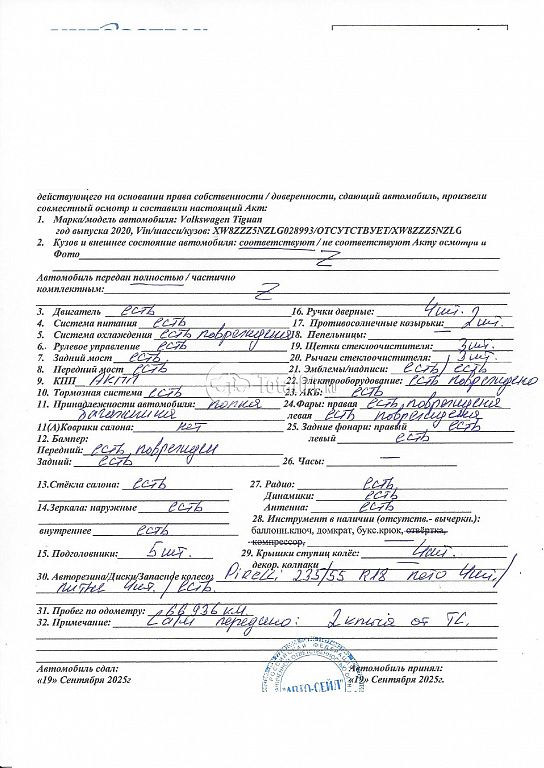 действующего на основании права собственности / доверенности, сдающий автомобиль, произвели
совместный осмотр и составили настоящий Акт:
1. Марка/модель автомобиля: Volkswagen Tiguan
год выпуска 2020, Vin/шасси/кузов: XW8ZZZ5NZLG028993/ОТСУТСТВУЕТ/XW8ZZZ5NZLG
2. Кузов и внешнее состояние автомобиля: соответствуют / не соответствуют Акту осмотра и
Фото
Автомобиль передан полностью / частично
комплектным:
3. Двигатель есть 16. Ручки дверные: 4шт.
4. Система питания есть 17. Противосолнечные козырьки: 2шт.
5. Система охлаждения есть повреждения 18. Пепельницы: —
6. Рулевое управление есть 19. Щетки стеклоочистителя: 3шт.
7. Задний мост есть 20. Рычаги стеклоочистителя: 3шт.
8. Передний мост есть 21. Эмблемы/надписи: есть/ есть
9. КПП АКПП 22. Электрооборудование: есть повреждено
10. Тормозная система есть 23. АКБ: есть
11. Принадлежности автомобиля: полка 24.Фары: правая есть, повреждения
багажника левая есть повреждения
11(А)Коврики салона: нет 25. Задние фонари: правый есть
12. Бампер: левый есть
Передний: есть, поврежден
Задний: есть 26. Часы: —
13.Стёкла салона: есть 27. Радио: есть
Динамики: есть
14.Зеркала: наружные есть Антенна: есть
28. Инструмент в наличии (отсутств.- вычеркн.):
внутреннее есть баллонн.ключ, домкрат, букс.крюк, отвёртка,
компрессор,
15. Подголовники: 5шт. 29. Крышки ступиц колёс: 4шт.
декор. колпаки —
30. Авторезина/Диски/Запасное колесо: Pirelli 235/55 R18 лето 4шт./
литые 4шт. / есть.
31. Пробег по одометру: 66 936 км.
32. Примечание: передано: 2 ключа от ТС.
Автомобиль сдал: Автомобиль принял:
«19» Сентября 2025г «19» Сентября 2025г.
"АВТО-СЕЙЛ"